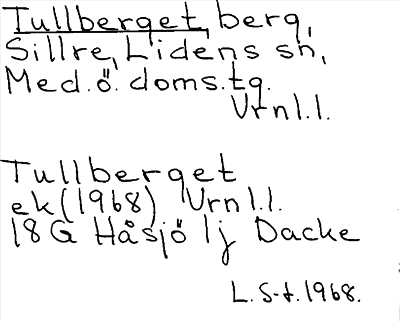 Tullberget, berg,
Sillre, Lidens sn,
Med. ö. doms. tg.
Vrnl.l.
Tullberget
ek (1968) Vrnl.l.
18G Håsjö lj Dacke
L. S-t. 1968.